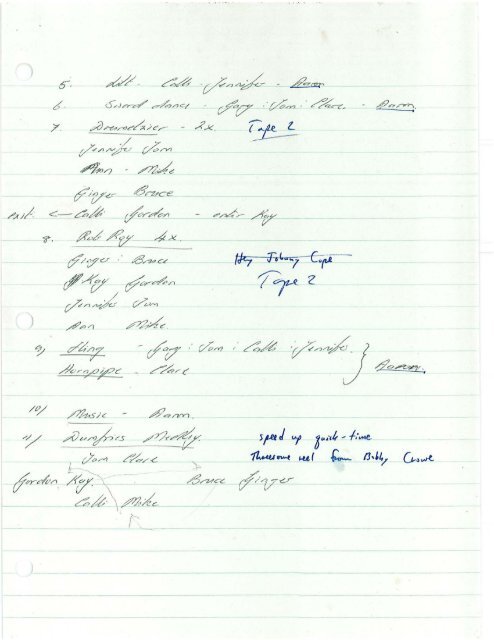 5. Lilt - Calli - Jennifer - Aaron
6 Sword dance - Gary : Tom : Clare. - Aaron
7 - 2x Tape 2
Jennifer Tom
Ann - Mike
Ginger Bruce
exit. ← Calli Gordon - enter Kay
8. Rob Roy 4x.
Ginger : Bruce Hey Johnny Cope
Kay Gordon Tape 2
Jennifer Tom
Ann Mike
9) Fling - Gary : Tom : Calli : Jennifer.
Hornpipe - Clare Aaron.
10) Music - Aaron.
11) Dumfries Medley. speed up quick-time
Tom Clare Threesome reel from Bobby Crowe
Gordon Kay Bruce Ginger
Calli Mike